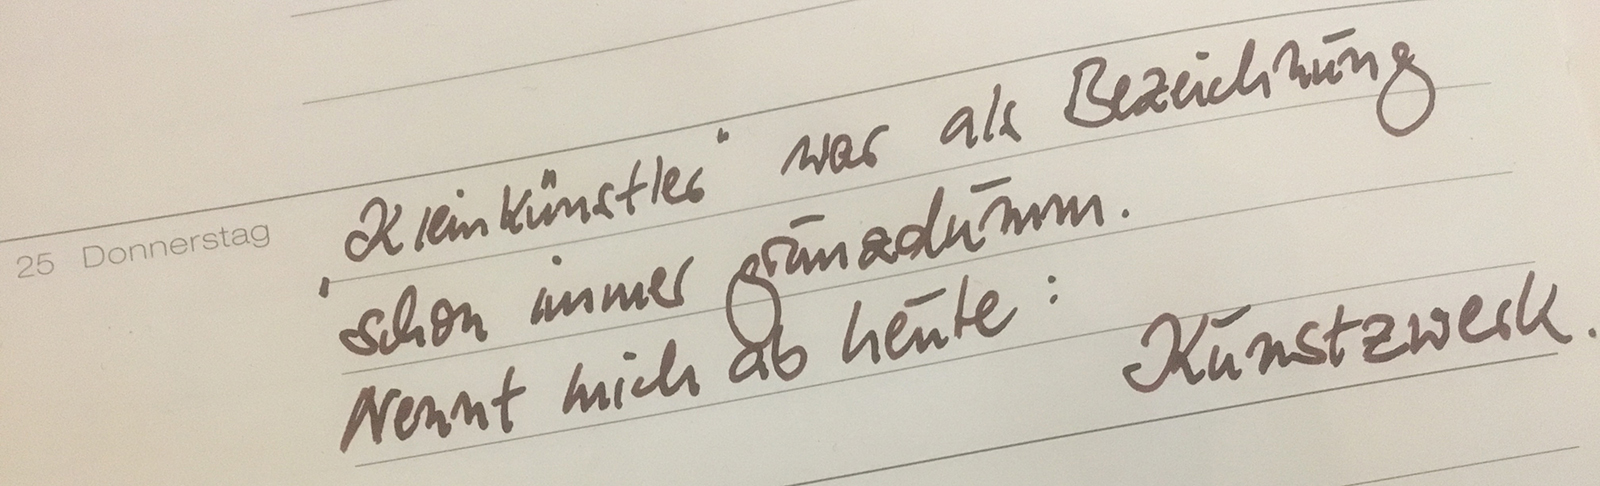 25 Donnerstag
"Kleinkünstler" war als Bezeichnung
schon immer grunzdumm.
Nennt mich ab heute:
Kunstzwerk.